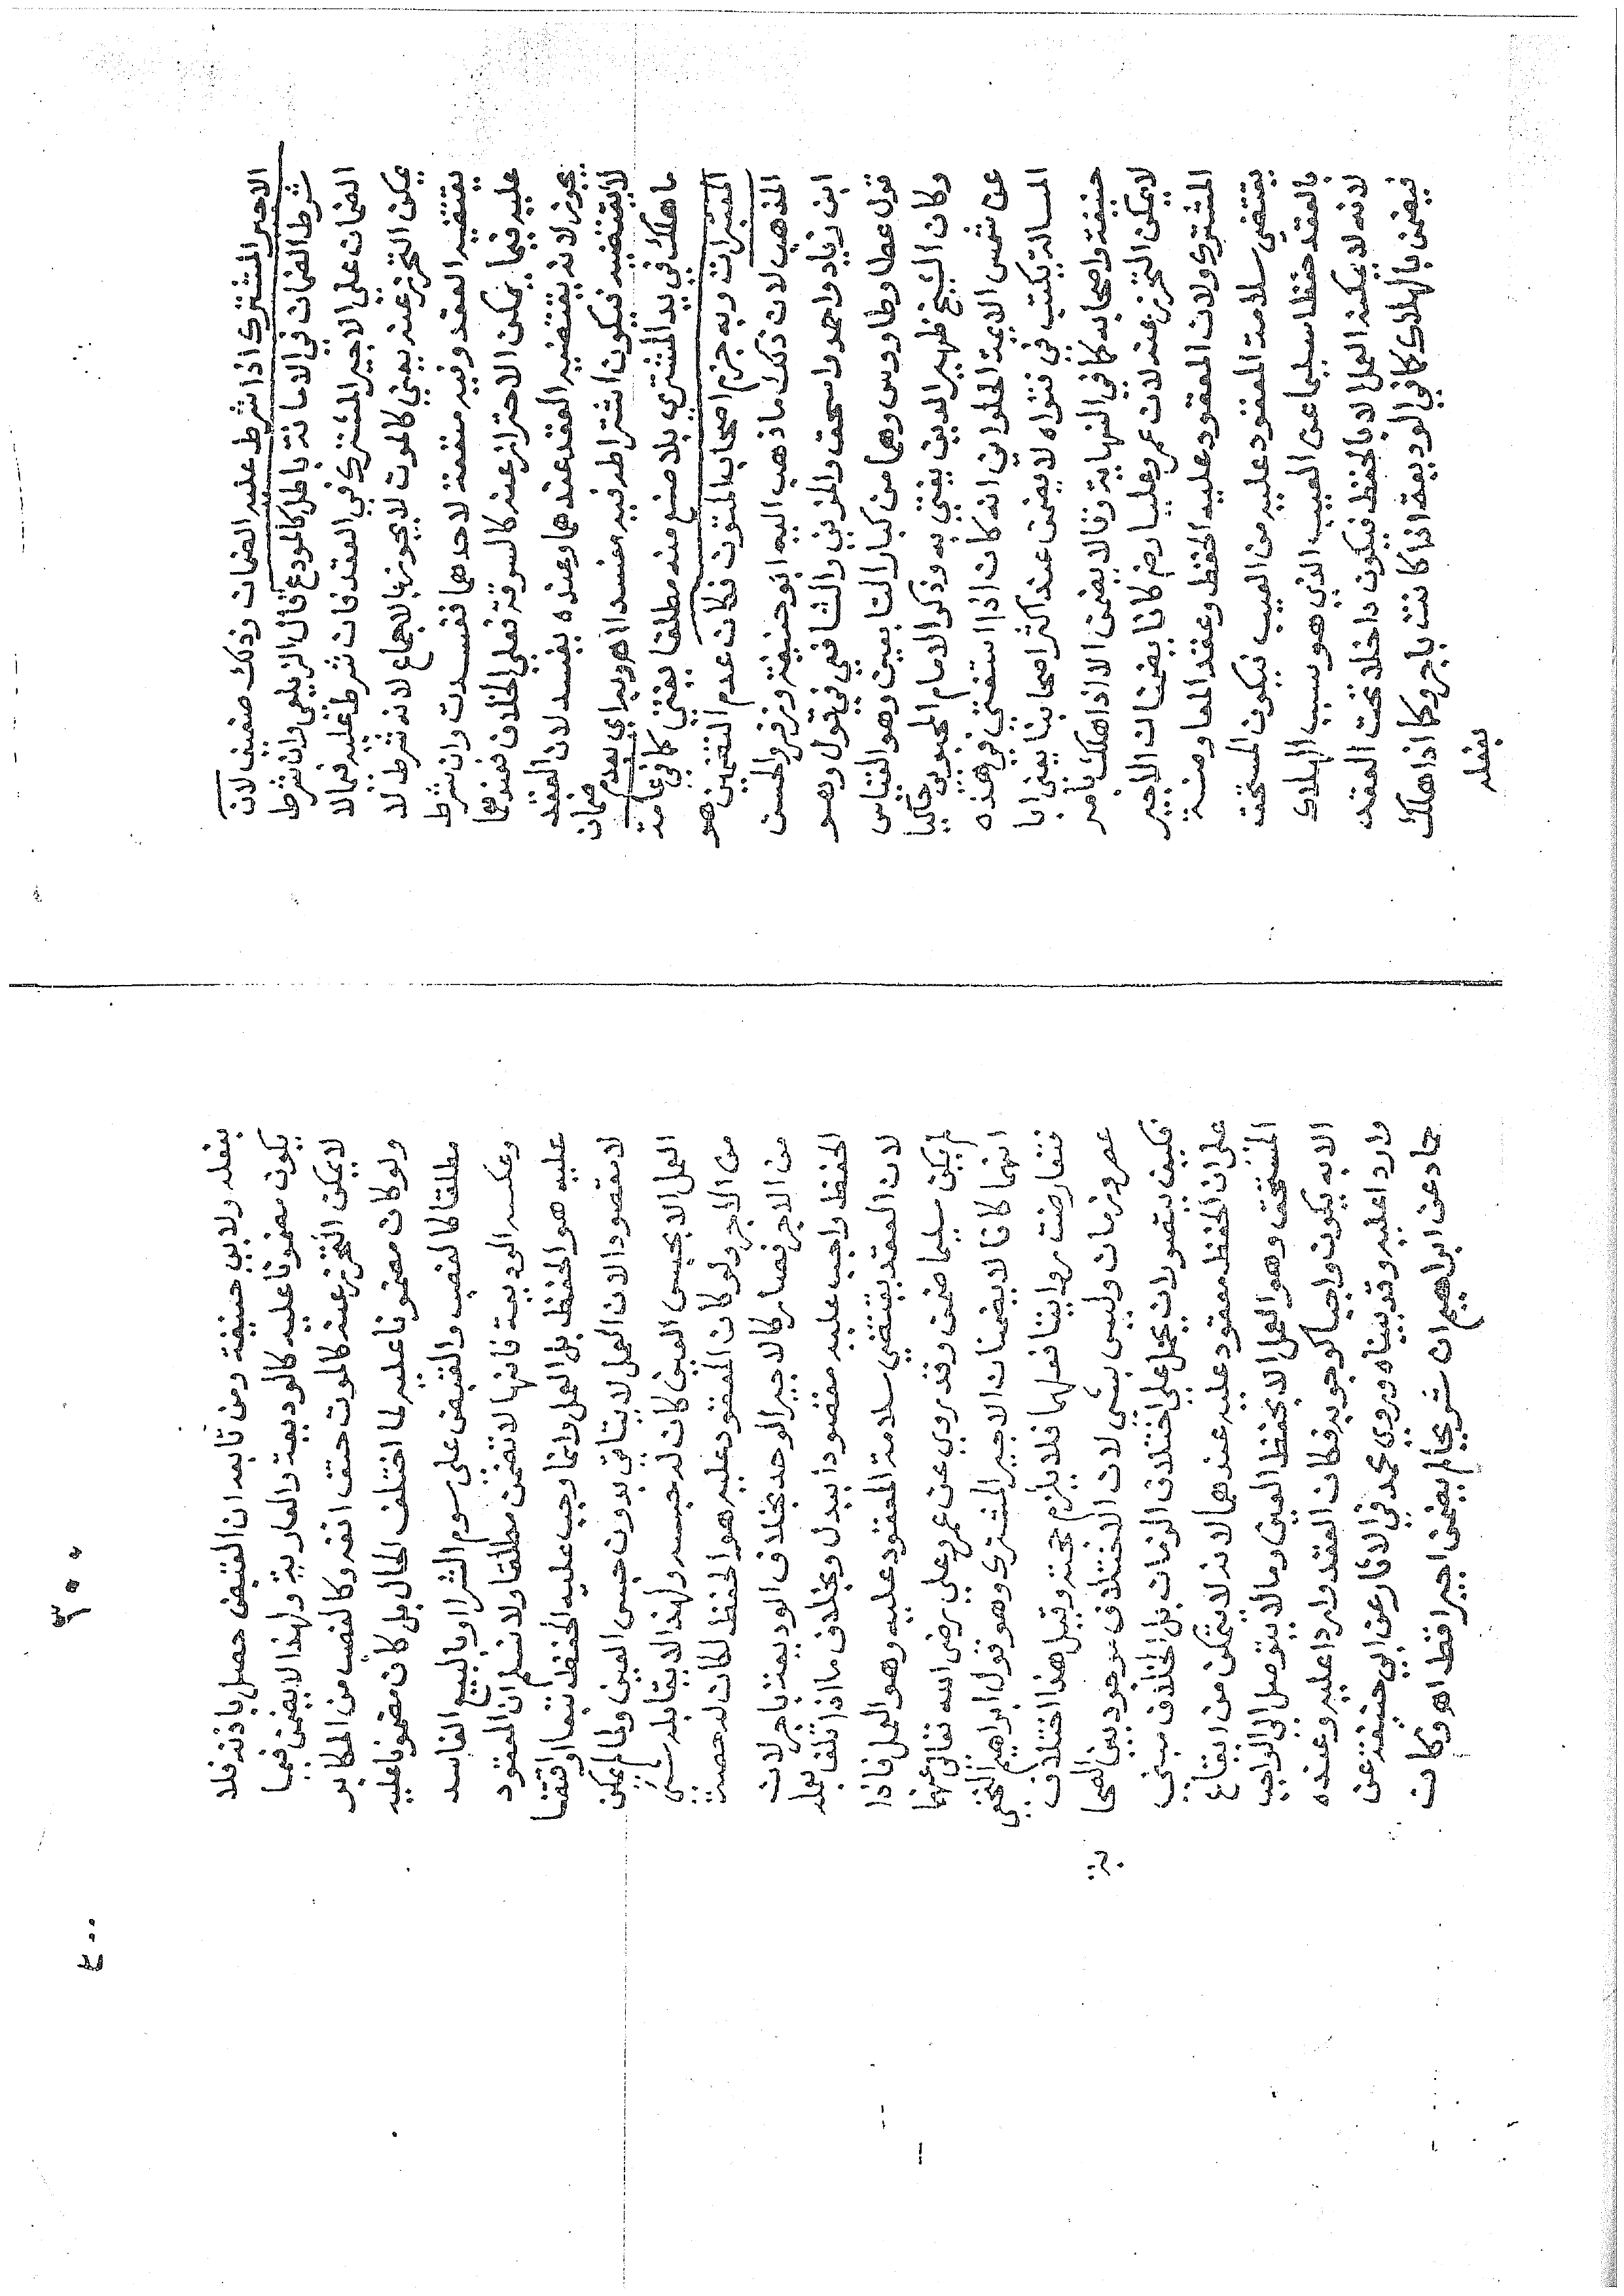 الاجير المشترك اذا شرط عليه الضمان وذلك ضعيف لان
شرط الضمان في الامانة باطل كالمودع قال الزيلعي وان شرط
الضمان على الاجير المشترك في العقد فان شرط عليه فيما لا
يمكن التحرز عنه يعني كالموت لا يجوز بالاجماع لانه شرط لا
يقتضيه العقد وفيه منفعة لاحدهما ففسدت وان شرط
عليه فيما يمكن الاحتراز عنه كالسرقة فعلى الخلاف فعندهما
يجوز لانه يقتضيه العقد عندهما وعنده يفسد لان العقد
لا يقتضيه فيكون اشتراطه فيه مفسدا اهـ وبه اي بعدم ضمان
ما هلك في يد المشترك بلا صنع منه مطلقا يفتى كما في عامة
المعتبرات وبه جزم اصحاب المتون فكان عدم التضمين هو
المذهب لان ذلك ما ذهب اليه ابو حنيفة وزفر والحسن
ابن زياد واحمد واسحق والمزني والشافعي في قول وهو
قول عطا وطاووس وهما من كبار التابعين وهو القياس
وكان الشيخ ظهير الدين يفتي به وذكر الامام المحبوبي حاكيا
عن شمس الايمة الحلواني انه كان اذا استفتي في هذه
المسالة يكتب في فتواه لا يضمن عند اكثر اصحابنا يعني ابا
حنيفة واصحابه كما في النهاية وقالا يضمن الا اذا هلك بامر
لا يمكن التحرز عنه لان عمر وعليا رض كانا يضمنان الاجير
المشترك ولان المعقود عليه الحفظ وعقد المعاوضة
يقتضي سلامة المعقود عليه من العيب فيكون المستحق
بالعقد حفظا سليما عن العيب الذي هو سبب الهلاك
لانه لا يمكنه العمل الا بالحفظ فيكون داخلا تحت العقد
فيضمن بالهلاك كما في الوديعة اذا كانت باجر وكما اذا هلك
بفعله
بفعله ولابي حنيفة ومن تابعه ان القبض حصل باذنه فلا
يكون مضمونا عليه كالوديعة والعارية ولهذا لا يضمن فيما
لا يمكن التحرز عنه كالموت حتف انفه وكالغصب من المكابر
ولو كان مضمونا عليه لما اختلف الحال بل كان مضمونا عليه
مطلقا كالغصب والقبض على سوم الشرا وبالبيع الفاسد
وعكسه الوديعة فانها لا تضمن مطلقا ولا نسلم ان المعقود
عليه هو الحفظ بل العمل وانما وجب عليه الحفظ تبعا وقعا
لا مقصودا لان العمل لا يتاتى بدون حبس العين ولما لم يمكن
العمل الا بحبس العين كان له حبسه ولهذا لا يقابله شيء
من الاجر ولو كان المعقود عليه هو الحفظ لكان له حصة
من الاجر فصار كالاجير الوحد بخلاف الوديعة باجر لان
الحفظ واجب عليه مقصودا ببدل وبخلاف ما اذا تلفا بعلة
لان العقد يقتضي سلامة المعقود عليه وهو العمل فاذا
لم يكن سليما ضمن وقد روي عن عمر وعلي رضى الله تعالى عنهما
انهما كانا لا يضمنان الاجير المشترك وهو قول ابراهيم النخعي
فتعارضت روايتا فعلهما فلا يلزم حجة وقيل هذا اختلاف
عصر وزمان وليس بشي لان الاختلاف موجود بين الصحا
بة
فكيف يتصور ان يحمل على اختلاف الزمان بل الخلاف مبني
على ان الحفظ معقود عليه عندهما لانه لا يتمكن من ايفاء
المستحق وهو العمل الا بحفظ العين وما لا يتوصل الى الواجب
الا به يكون واجبا كوجوبه فكان العقد واردا عليه وعنده
وارد اعليه وقد بيناه وروى محمد في الاثار عن ابي حنيفة عن
حماد عن ابراهيم ان شريحا لم يضمن اجيرا قط اهـ وكان